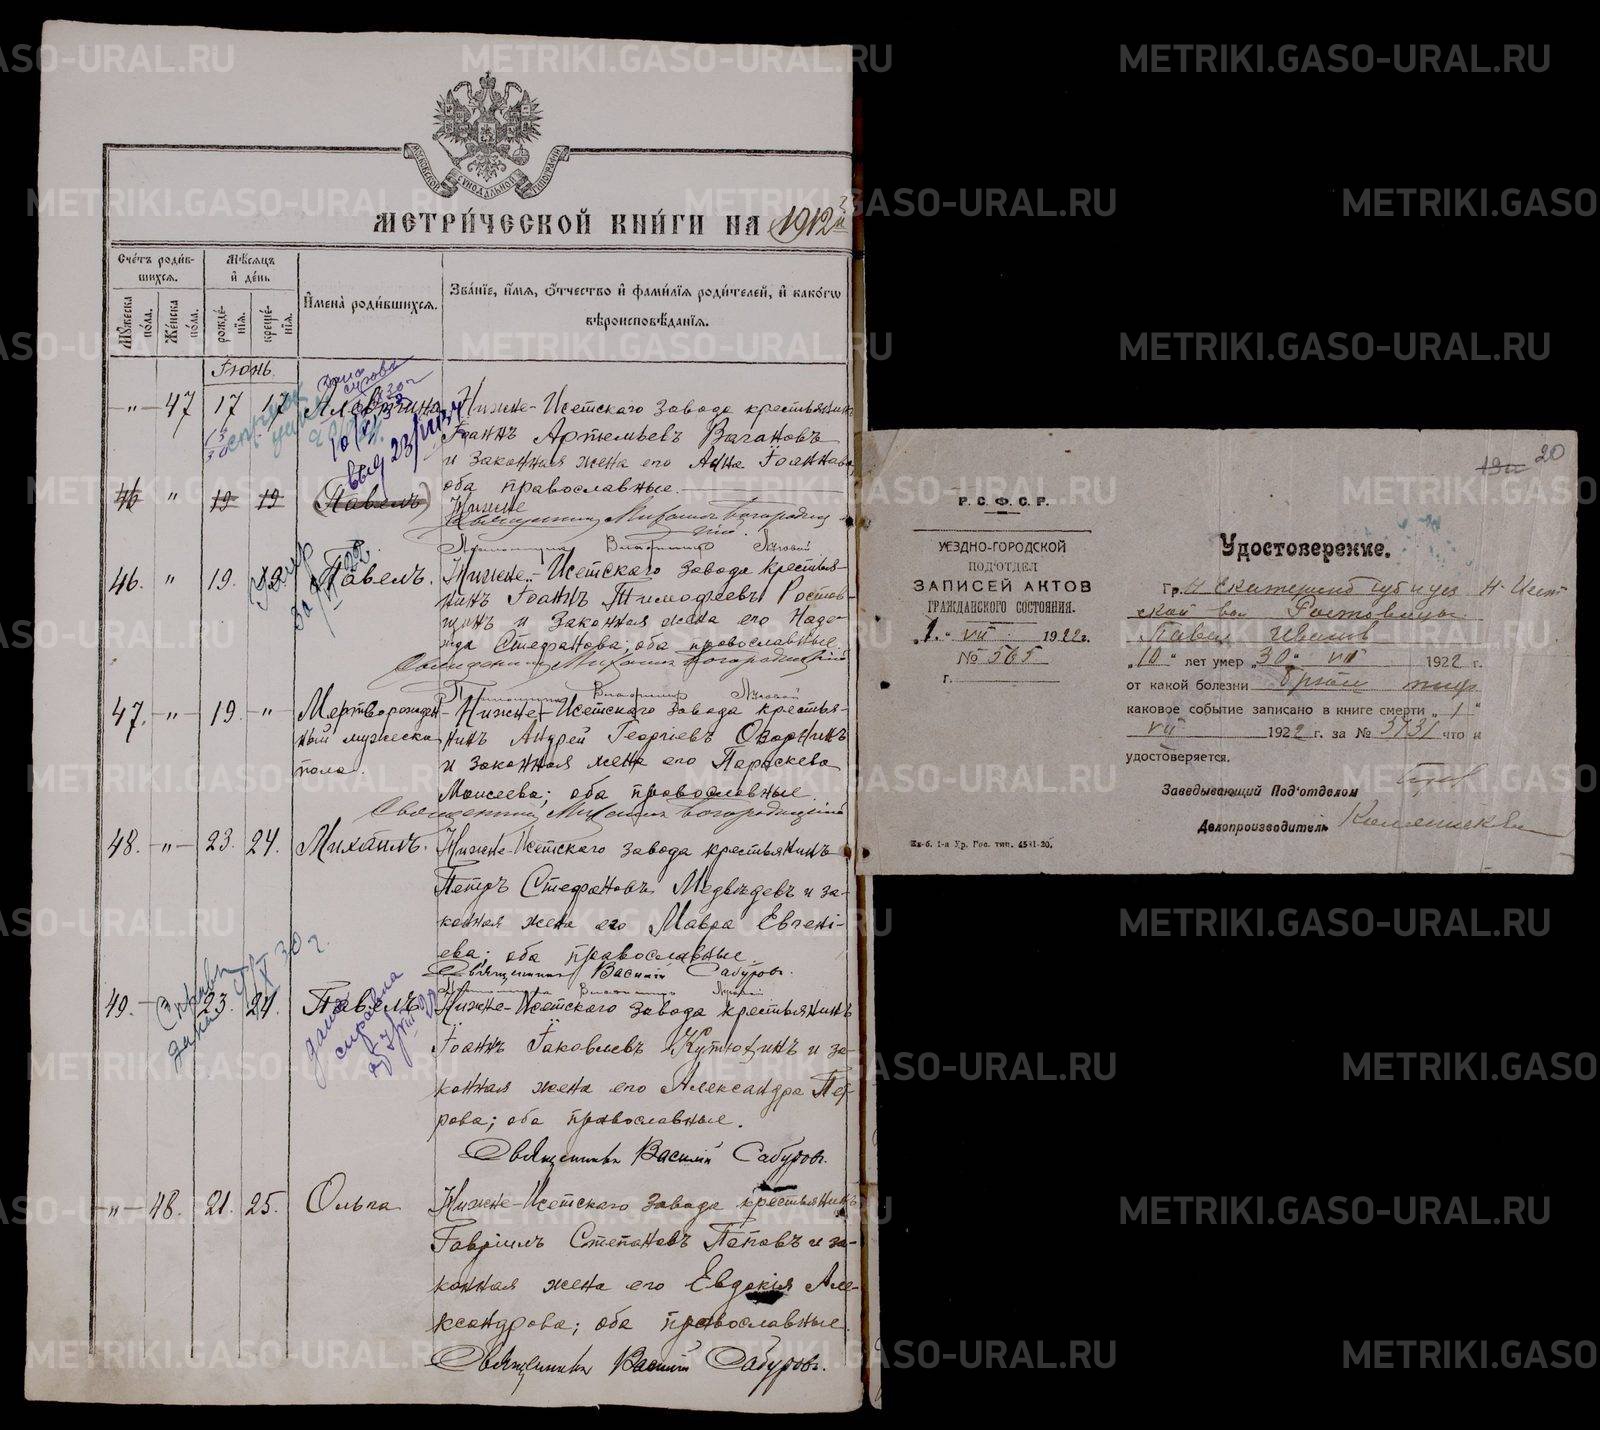 МОСКОВСКОЙ СѴНОДАЛЬНОЙ ТИПОГРАФІИ
МЕТРИ́ЧЕСКОЙ КНИ́ГИ НА 1912
Сче́тъ роди́в-
шихся.
Мѣ́сяцъ
и҆ де́нь.
И҆мена̀ роди́вшихся.
Зва́нїе, и҆́мя, ѻ҆́тчество и҆ фами́лїя роди́телей, и҆ како́гѡ
вѣроисповѣ́данїя.
Мꙋ́жеска
по́ла.
Же́нска
по́ла.
рожде́-
нїя.
креще́-
нїя.
Іюнь.
-„- 47 17 17 Алевтина Нижне-Исетскаго завода крестьянинъ
Іоаннъ Артемьевъ Вагановъ
и законная жена его Анна Іоаннова
оба православные.
46 „ 19 19 (Павелъ) Нижне
Священник Михаил Богородицкий
46. „ 19. 19. Павелъ. Нижне-Исетскаго завода крестья-
нинъ Іоаннъ Тимофеевъ Ростов-
щикъ и законная жена его Наде-
жда Стефанова; оба православные.
Священник Михаил Богородицкий
47. -„- 19. -„- Мертворожден- Нижне-Исетскаго завода крестья-
ный мужеска нинъ Андрей Георгіевъ Озорнинъ
пола. и законная жена его Параскева
Моисеева; оба православные
Священник Михаил Богородицкий
48. -„- 23. 24. Михаилъ. Нижне-Исетскаго завода крестьянинъ
Петръ Стефановъ Медвѣдевъ и за-
конная жена его Мавра Евгені-
ева; оба православные.
Священникъ Василій Сабуровъ.
49. 23. 24. Павелъ Нижне-Исетскаго завода крестьянинъ
Іоаннъ Іаковлевъ Кутюхинъ и за-
конная жена его Александра Пет-
рова; оба православные.
Священникъ Василій Сабуровъ.
-„- 48. 21. 25. Ольга Нижне-Исетскаго завода крестьянинъ
Гавріилъ Степановъ Поповъ и за-
конная жена его Евдокія Але-
ксандрова; оба православные.
Священникъ Василій Сабуровъ.
дана
справка
20
Р. С. Ф. С. Р.
УЕЗДНО-ГОРОДСКОЙ
ПОД'ОТДЕЛ
ЗАПИСЕЙ АКТОВ
ГРАЖДАНСКОГО СОСТОЯНИЯ.
„1„ VII 1922г.
№ 565
г.
Удостоверение.
Гр. Екатеринб губ и уез Н-Исет
ской вол Ростовщи
Павел Иванов
„10“ лет умер „30“ VII 1922 г.
от какой болезни брюш тиф
каковое событие записано в книге смерти „1“
VII 1922 г. за № 3731 что и
удостоверяется.
Заведывающий Под'отделом
Делопроизводитель
Ек-б. 1-я Хр. Гос. тип. 4581-20.
METRIKI.GASO-URAL.RU